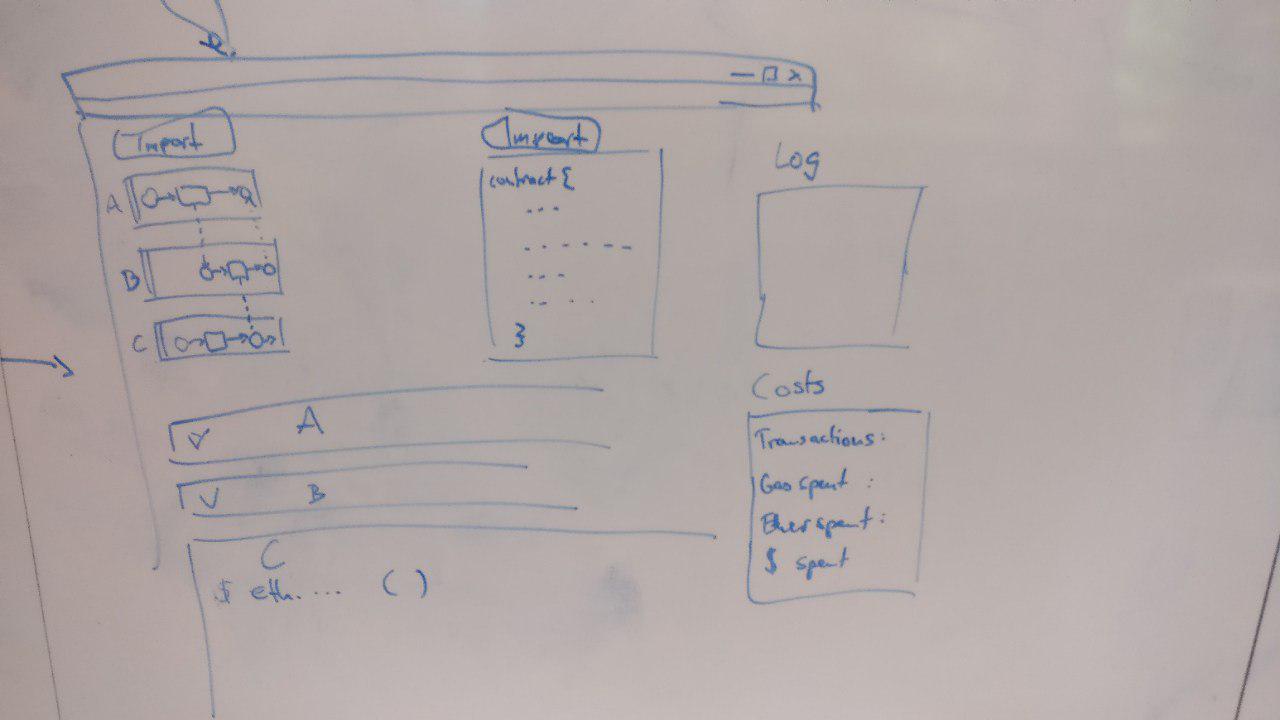 Import
A
B
C
Import
contract {
... 
. . . . . . .
...
.. . . .
}
Log
Costs
Transactions:
Gas spent :
Ether spent:
$ spent
A
B
C
$ eth. ... ( )